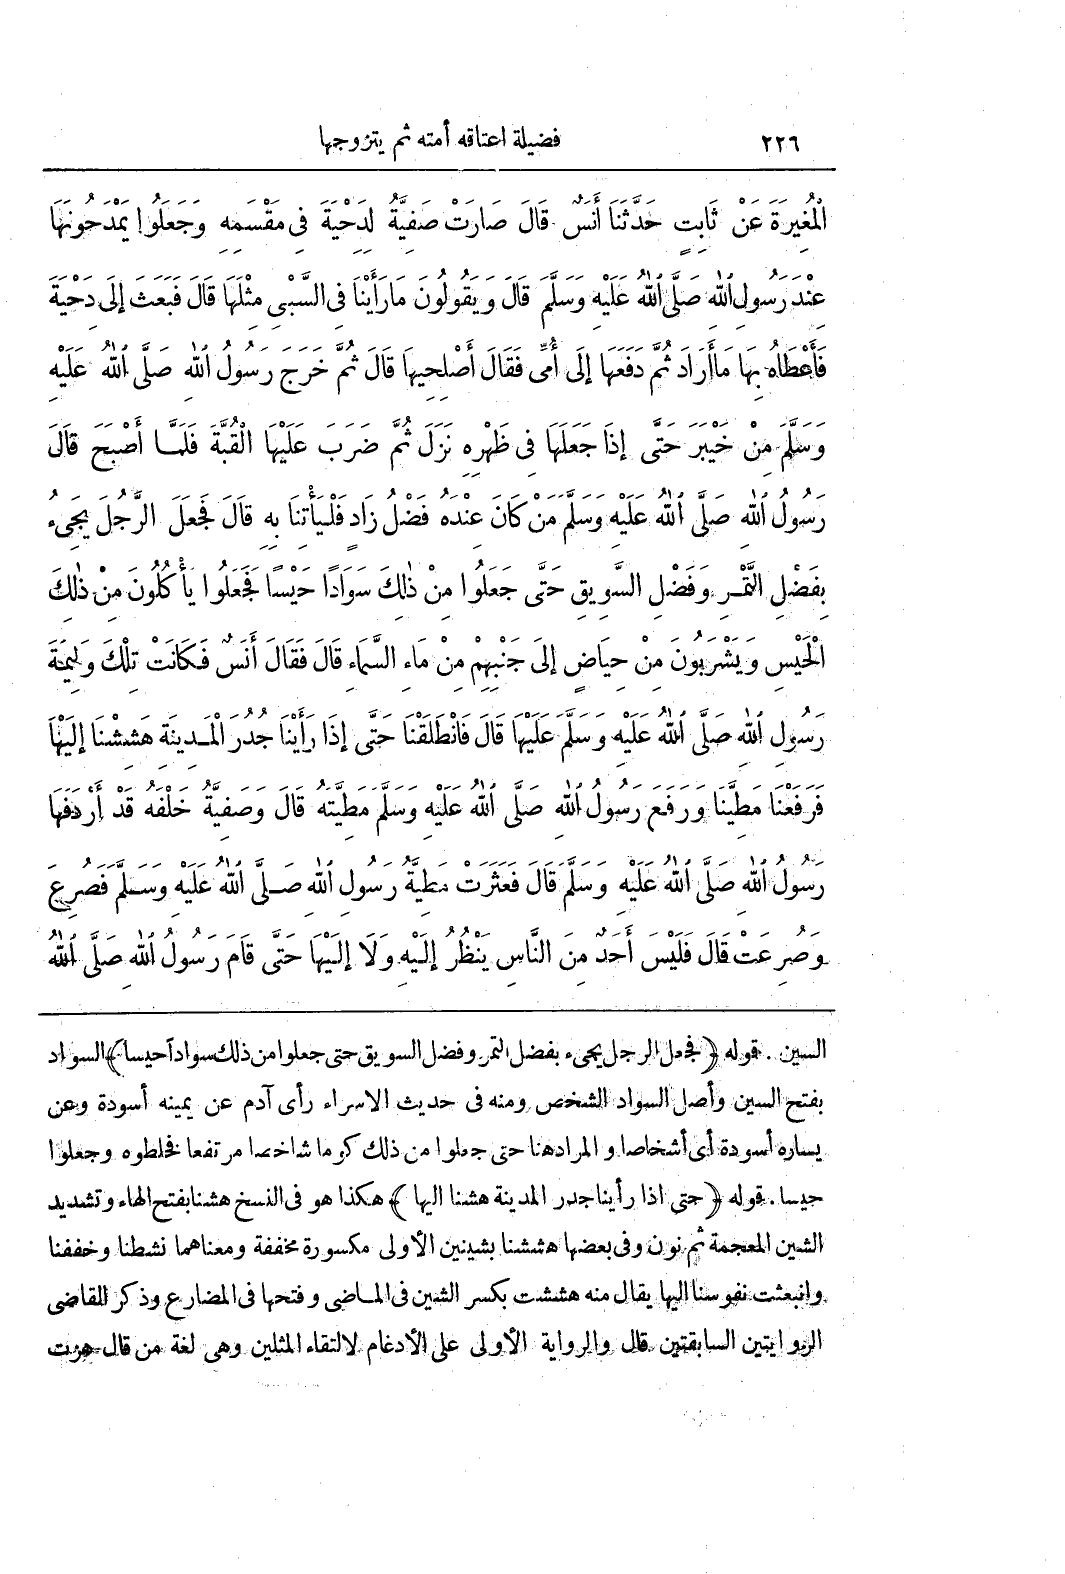 ٢٢٦ فضيلة اعتاقه أمته ثم يتزوجها
الْمُغِيرَةِ عَنْ ثَابِتٍ حَدَّثَنَا أَنَسٌ قَالَ صَارَتْ صَفِيَّةُ لِدَحْيَةَ فِى مَقْسَمِهِ وَجَعَلُوا يَمْدَحُونَهَا
عِنْدَ رَسُولِ اللهِ صَلَّى اللهُ عَلَيْهِ وَسَلَّمَ قَالَ وَيَقُولُونَ مَا رَأَيْنَا فِى السَّبْىِ مِثْلَهَا قَالَ فَبَعَثَ إِلَى دَحْيَةَ
فَأَعْطَاهُ بِهَا مَا أَرَادَ ثُمَّ دَفَعَهَا إِلَى أُمِّى فَقَالَ أَصْلِحِيهَا قَالَ ثُمَّ خَرَجَ رَسُولُ اللهِ صَلَّى اللهُ عَلَيْهِ
وَسَلَّمَ مِنْ خَيْبَرَ حَتَّى إِذَا جَعَلَهَا فِى ظَهْرِهِ نَزَلَ ثُمَّ ضَرَبَ عَلَيْهَا الْقُبَّةَ فَلَمَّا أَصْبَحَ قَالَ
رَسُولُ اللهِ صَلَّى اللهُ عَلَيْهِ وَسَلَّمَ مَنْ كَانَ عِنْدَهُ فَضْلُ زَادٍ فَلْيَأْتِنَا بِهِ قَالَ فَجَعَلَ الرَّجُلُ يَجِىءُ
بِفَضْلِ التَّمْرِ وَفَضْلِ السَّوِيقِ حَتَّى جَعَلُوا مِنْ ذٰلِكَ سَوَادًا حَيْسًا فَجَعَلُوا يَأْكُلُونَ مِنْ ذٰلِكَ
الْحَيْسِ وَيَشْرَبُونَ مِنْ حِيَاضٍ إِلَى جَنْبِهِمْ مِنْ مَاءِ السَّمَاءِ قَالَ فَقَالَ أَنَسٌ فَكَانَتْ تِلْكَ وَلِيمَةَ
رَسُولِ اللهِ صَلَّى اللهُ عَلَيْهِ وَسَلَّمَ عَلَيْهَا قَالَ فَانْطَلَقْنَا حَتَّى إِذَا رَأَيْنَا جُدُرَ الْمَدِينَةِ هَشِشْنَا إِلَيْهَا
فَرَفَعْنَا مَطِيَّنَا وَرَفَعَ رَسُولُ اللهِ صَلَّى اللهُ عَلَيْهِ وَسَلَّمَ مَطِيَّتَهُ قَالَ وَصَفِيَّةُ خَلْفَهُ قَدْ أَرْدَفَهَا
رَسُولُ اللهِ صَلَّى اللهُ عَلَيْهِ وَسَلَّمَ قَالَ فَعَثَرَتْ مَطِيَّةُ رَسُولِ اللهِ صَلَّى اللهُ عَلَيْهِ وَسَلَّمَ فَصُرِعَ
وَصُرِعَتْ قَالَ فَلَيْسَ أَحَدٌ مِنَ النَّاسِ يَنْظُرُ إِلَيْهِ وَلَا إِلَيْهَا حَتَّى قَامَ رَسُولُ اللهِ صَلَّى اللهُ
السين . قوله ﴿فجعل الرجل يجىء بفضل التمر وفضل السويق حتى جعلوا من ذلك سوادا حيسا﴾ السواد
بفتح السين وأصل السواد الشخص ومنه فى حديث الاسراء رأى آدم عن يمينه أسودة وعن
يساره أسودة أى أشخاصا والمراد هنا حتى جعلوا من ذلك كوما شاخصا مرتفعا فخلطوه وجعلوا
حيسا . قوله ﴿حتى اذا رأينا جدر المدينة هشنا اليها﴾ هكذا هو فى النسخ هشنا بفتح الهاء وتشديد
الشين المعجمة ثم نون وفى بعضها هششنا بشينين الأولى مكسورة مخففة ومعناهما نشطنا وخففنا
وانبعثت نفوسنا اليها يقال منه هششت بكسر الشين فى الماضى وفتحها فى المضارع وذكر القاضى
الروايتين السابقتين قال والرواية الأولى على الادغام لالتقاء المثلين وهى لغة من قال هزت